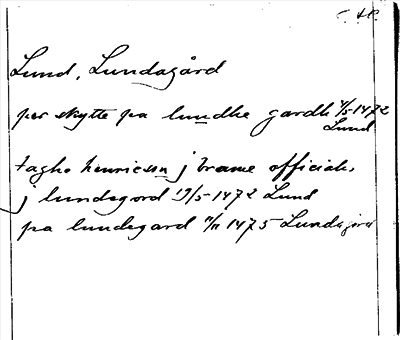 Lund, Lundagård
per skytte pa lundhe gardh 4/5 1472
Lund
taghe henricsson j brame officialis
j lundegord 19/5-1472 Lund
pa lundegard 1475 Lundagård